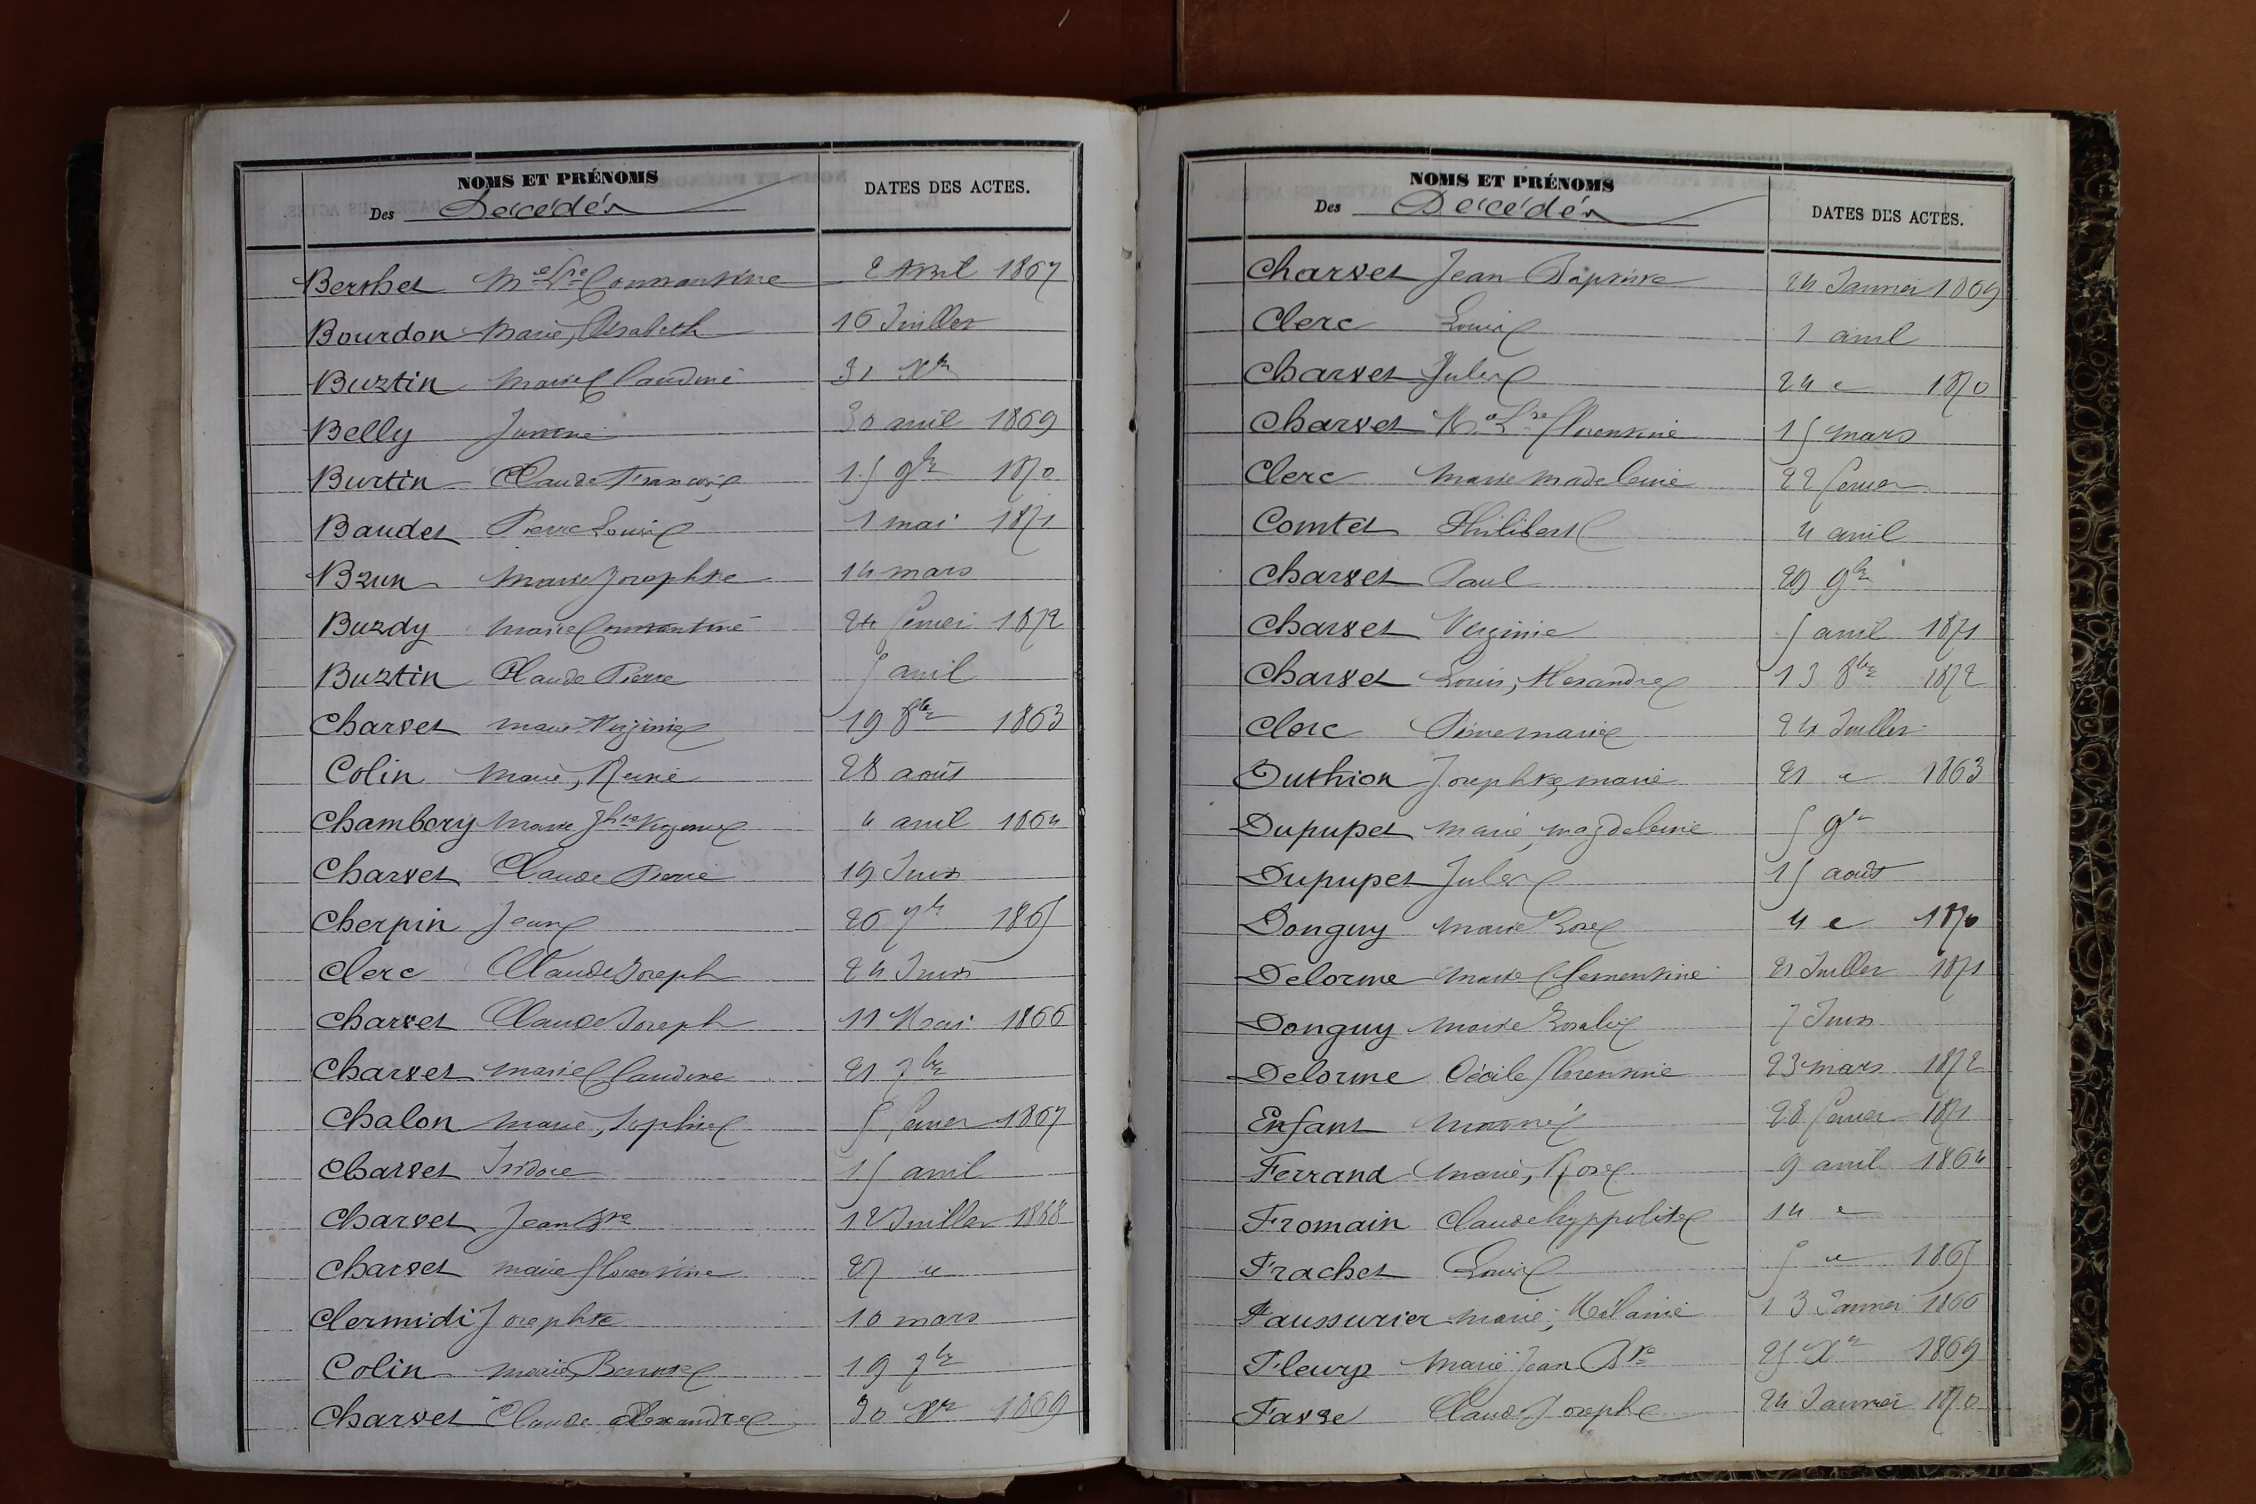 NOMS ET PRÉNOMS
Des Décédés
DATES DES ACTES.
Berthet Mie Lse Constantine 2 Avril 1867
Bourdon Marie, Elisabeth 16 Juillet
Burtin Marie Claudine 31 Xbre
Belly Justine 30 avril 1869
Burtin Claude François 15 9bre 1870
Baudet Pierre Louis 1 mai 1871
Brun Marie Josephte 14 mars
Burdy Marie Constantine 24 février 1872
Burtin Claude Pierre 5 avril
Charvet Marie Virginie 19 8bre 1863
Colin Marie, Reine 28 août
Chambery Marie Jhte 4 avril 1864
Charvet Claude Pierre 19 Juin
Cherpin Jean 26 7bre 1865
Clerc Claude Joseph 24 Juin
Charvet Claude Joseph 11 Mai 1866
Charvet Marie Claudine 21 7bre
Chalon Marie, Sophie 5 février 1867
Charvet Isidore 15 avril
Charvet Jean Bte 12 Juillet 1868
Charvet Marie florentine 27 "
Clermidi Josephte 10 mars
Colin Marie, Benoite 19 7bre
Charvet Claude Alexandre 30 Xbre 1869
NOMS ET PRÉNOMS
Des Décédés
DATES DES ACTES.
Charvet Jean Baptiste 24 Janvier 1869
Clerc Louis 1 avril
Charvet Jules 24 " 1870
Charvet Mie Lse florentine 15 mars
Clerc Marie Madeleine 22 février
Comtet Philibert 4 avril
Charvet Paul 29 9bre
Charvet Virginie 5 avril 1871
Charvet Louis, Alexandre 13 8bre 1872
Clerc Pierre marie 24 Juillet
Duthion Josephte, marie 21 " 1863
Dupupet Marie, magdeleine 5 9bre
Dupupet Jules 15 août
Donguy Marie Rose 4 " 1870
Delorme Marie Clementine 21 Juillet 1871
Donguy Marie Rosalie 7 Juin
Delorme Cécile florentine 23 mars 1872
Enfant Mort né 28 février 1871
Ferrand Marie, Rose 9 avril 1864
Fromain Claude hyppolite 14 "
Frachet Louis 5 " 1865
Faussurier Marie, Mélanie 13 Janvier 1866
Fleury Marie Jean Bte 25 Xbre 1869
Favre Claude Joseph 24 Janvier 1870